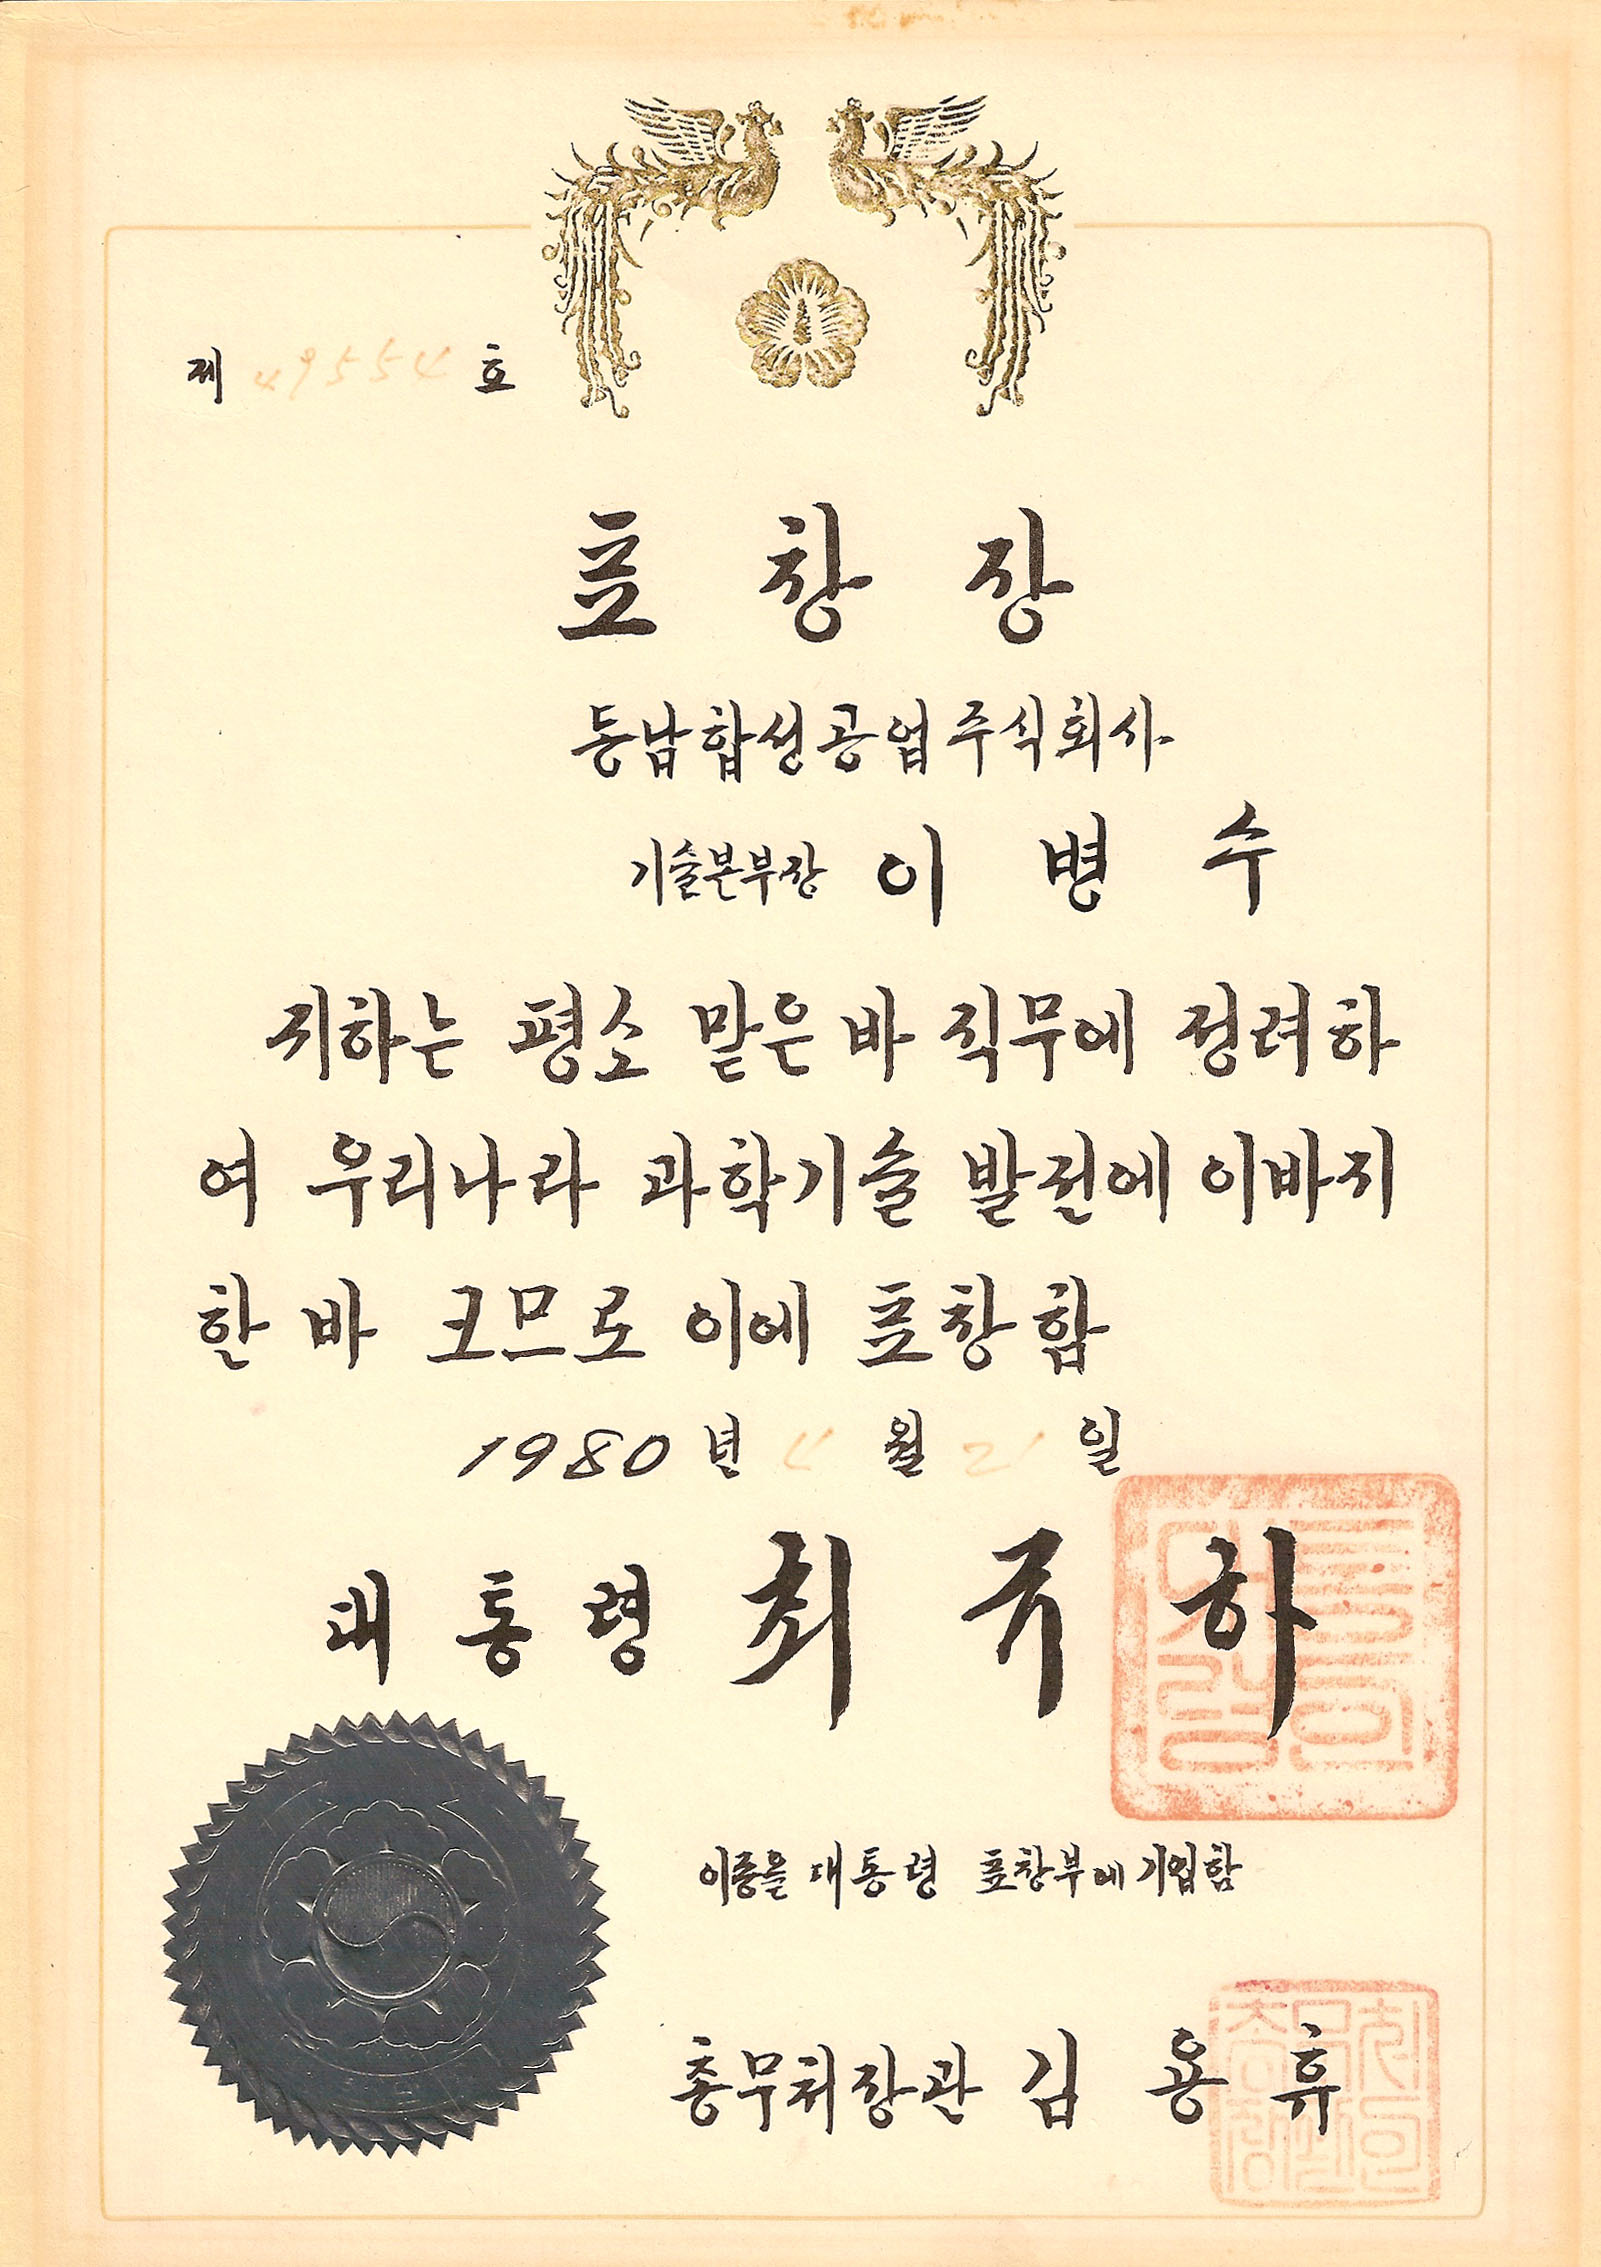 제 49554 호
표창장
동남합성공업주식회사
기술본부장 이병수
귀하는 평소 맡은바 직무에 정려하
여 우리나라 과학기술 발전에 이바지
한 바 크므로 이에 표창함
1980년 4월 21일
대통령 최규하
대통령
이증을 대통령 표창부에 기입함
총무처장관 김용휴
총무처장관